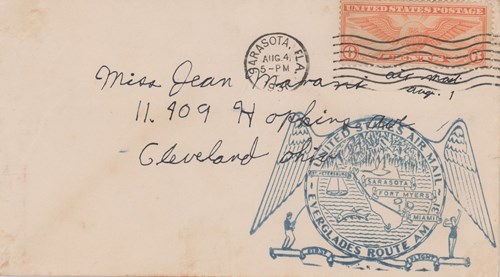 SARASOTA, FLA.
AUG. 4
5-PM
UNITED STATES POSTAGE
6 CENTS 6
air mail
aug. 1
Miss Jean
11409 Hopkins Ave
Cleveland Ohio
UNITED STATES AIR MAIL
ST. PETERSBURG
SARASOTA
FORT MYERS
MIAMI
EVERGLADES ROUTE AM
FIRST FLIGHT